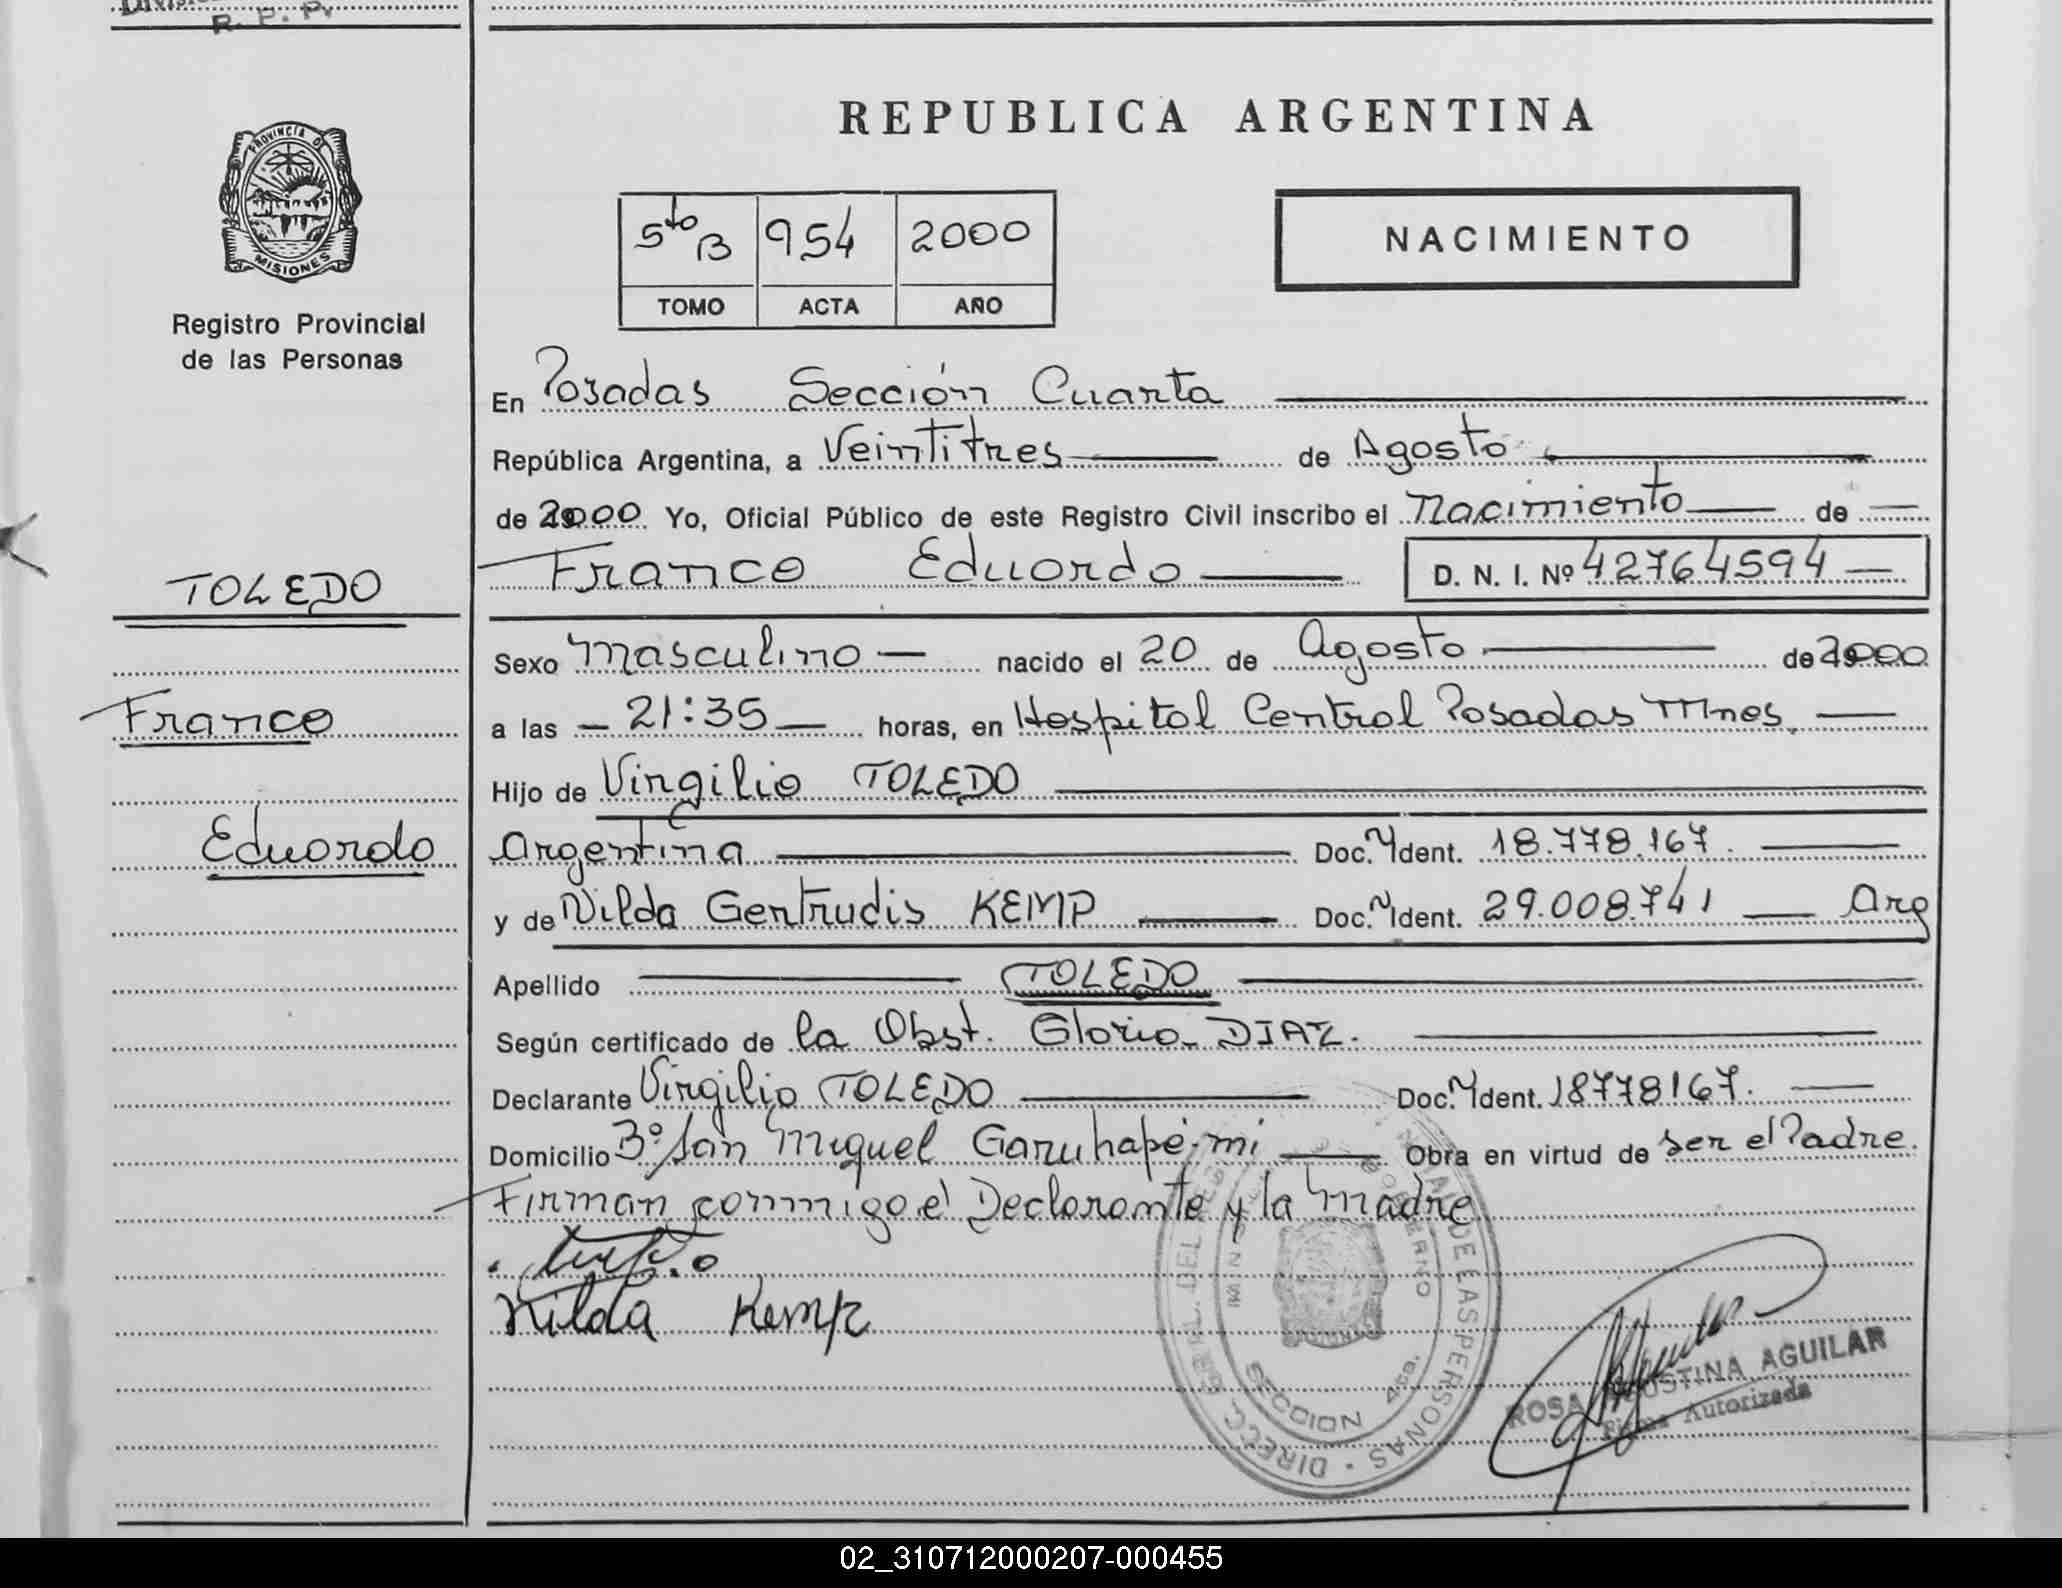 R. P. P.
REPUBLICA ARGENTINA
PROVINCIA DE
MISIONES
Registro Provincial
de las Personas
5to B 954 2000
TOMO ACTA AÑO
NACIMIENTO
En Posadas Sección Cuarta
República Argentina, a Veintitres de Agosto
de 2000 Yo, Oficial Público de este Registro Civil inscribo el Nacimiento de
Franco Eduardo D. N. I. Nº 42764594
TOLEDO
Sexo Masculino nacido el 20 de Agosto de 2000
Franco
a las 21:35 horas, en Hospital Central Posadas Mnes,
Hijo de Virgilio TOLEDO
Eduardo
Argentina Doc. Ident. 18.778.167.
y de Nilda Gertrudis KEMP Doc. Ident. 29.008.741 Arg
Apellido TOLEDO
Según certificado de la Obst. Gloria DIAZ.
Declarante Virgilio TOLEDO Doc. Ident. 18778167.
Domicilio Bº San Miguel Garuhapé-mi Obra en virtud de ser el Padre.
Firman conmigo el Declarante y la Madre
Nilda Kemp
SECCION 4ta.
ROSA AGUSTINA AGUILAR
Firma Autorizada
02_310712000207-000455